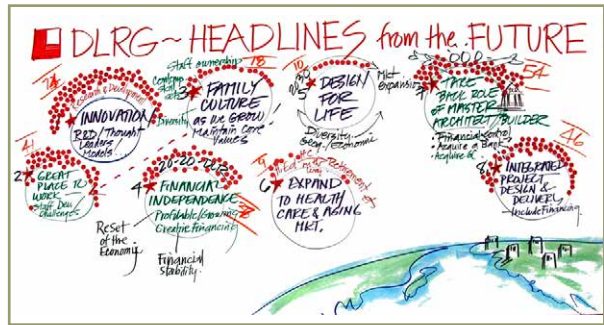 DLRG ~ HEADLINES from the FUTURE
Research & Development
INNOVATION
R&D/Thought
Leaders/
Models
41
2
GREAT
PLACE TO
WORK
Staff Dev
Challenges
Staff ownership
18
3
Diversity
FAMILY
CULTURE
as WE GROW
Maintain Core
Values
20-20-
4
FINANCIAL
INDEPENDENCE
Profitable/Growing
Creative Financing
Reset
of the
Economy
Financial
Stability
10
5
DESIGN
FOR
LIFE
Mkt
Expansion
Diversity
Geog/Economic
9
Retirement
6
EXPAND
TO HEALTH
CARE & AGING
MKT.
54
7
TAKE
BACK ROLE
OF MASTER
ARCHITECT/BUILDER
• Financial control
• Acquire a Bank
• Acquire GC
46
8
INTEGRATED
PROJECT
DESIGN &
DELIVERY
Include Financing